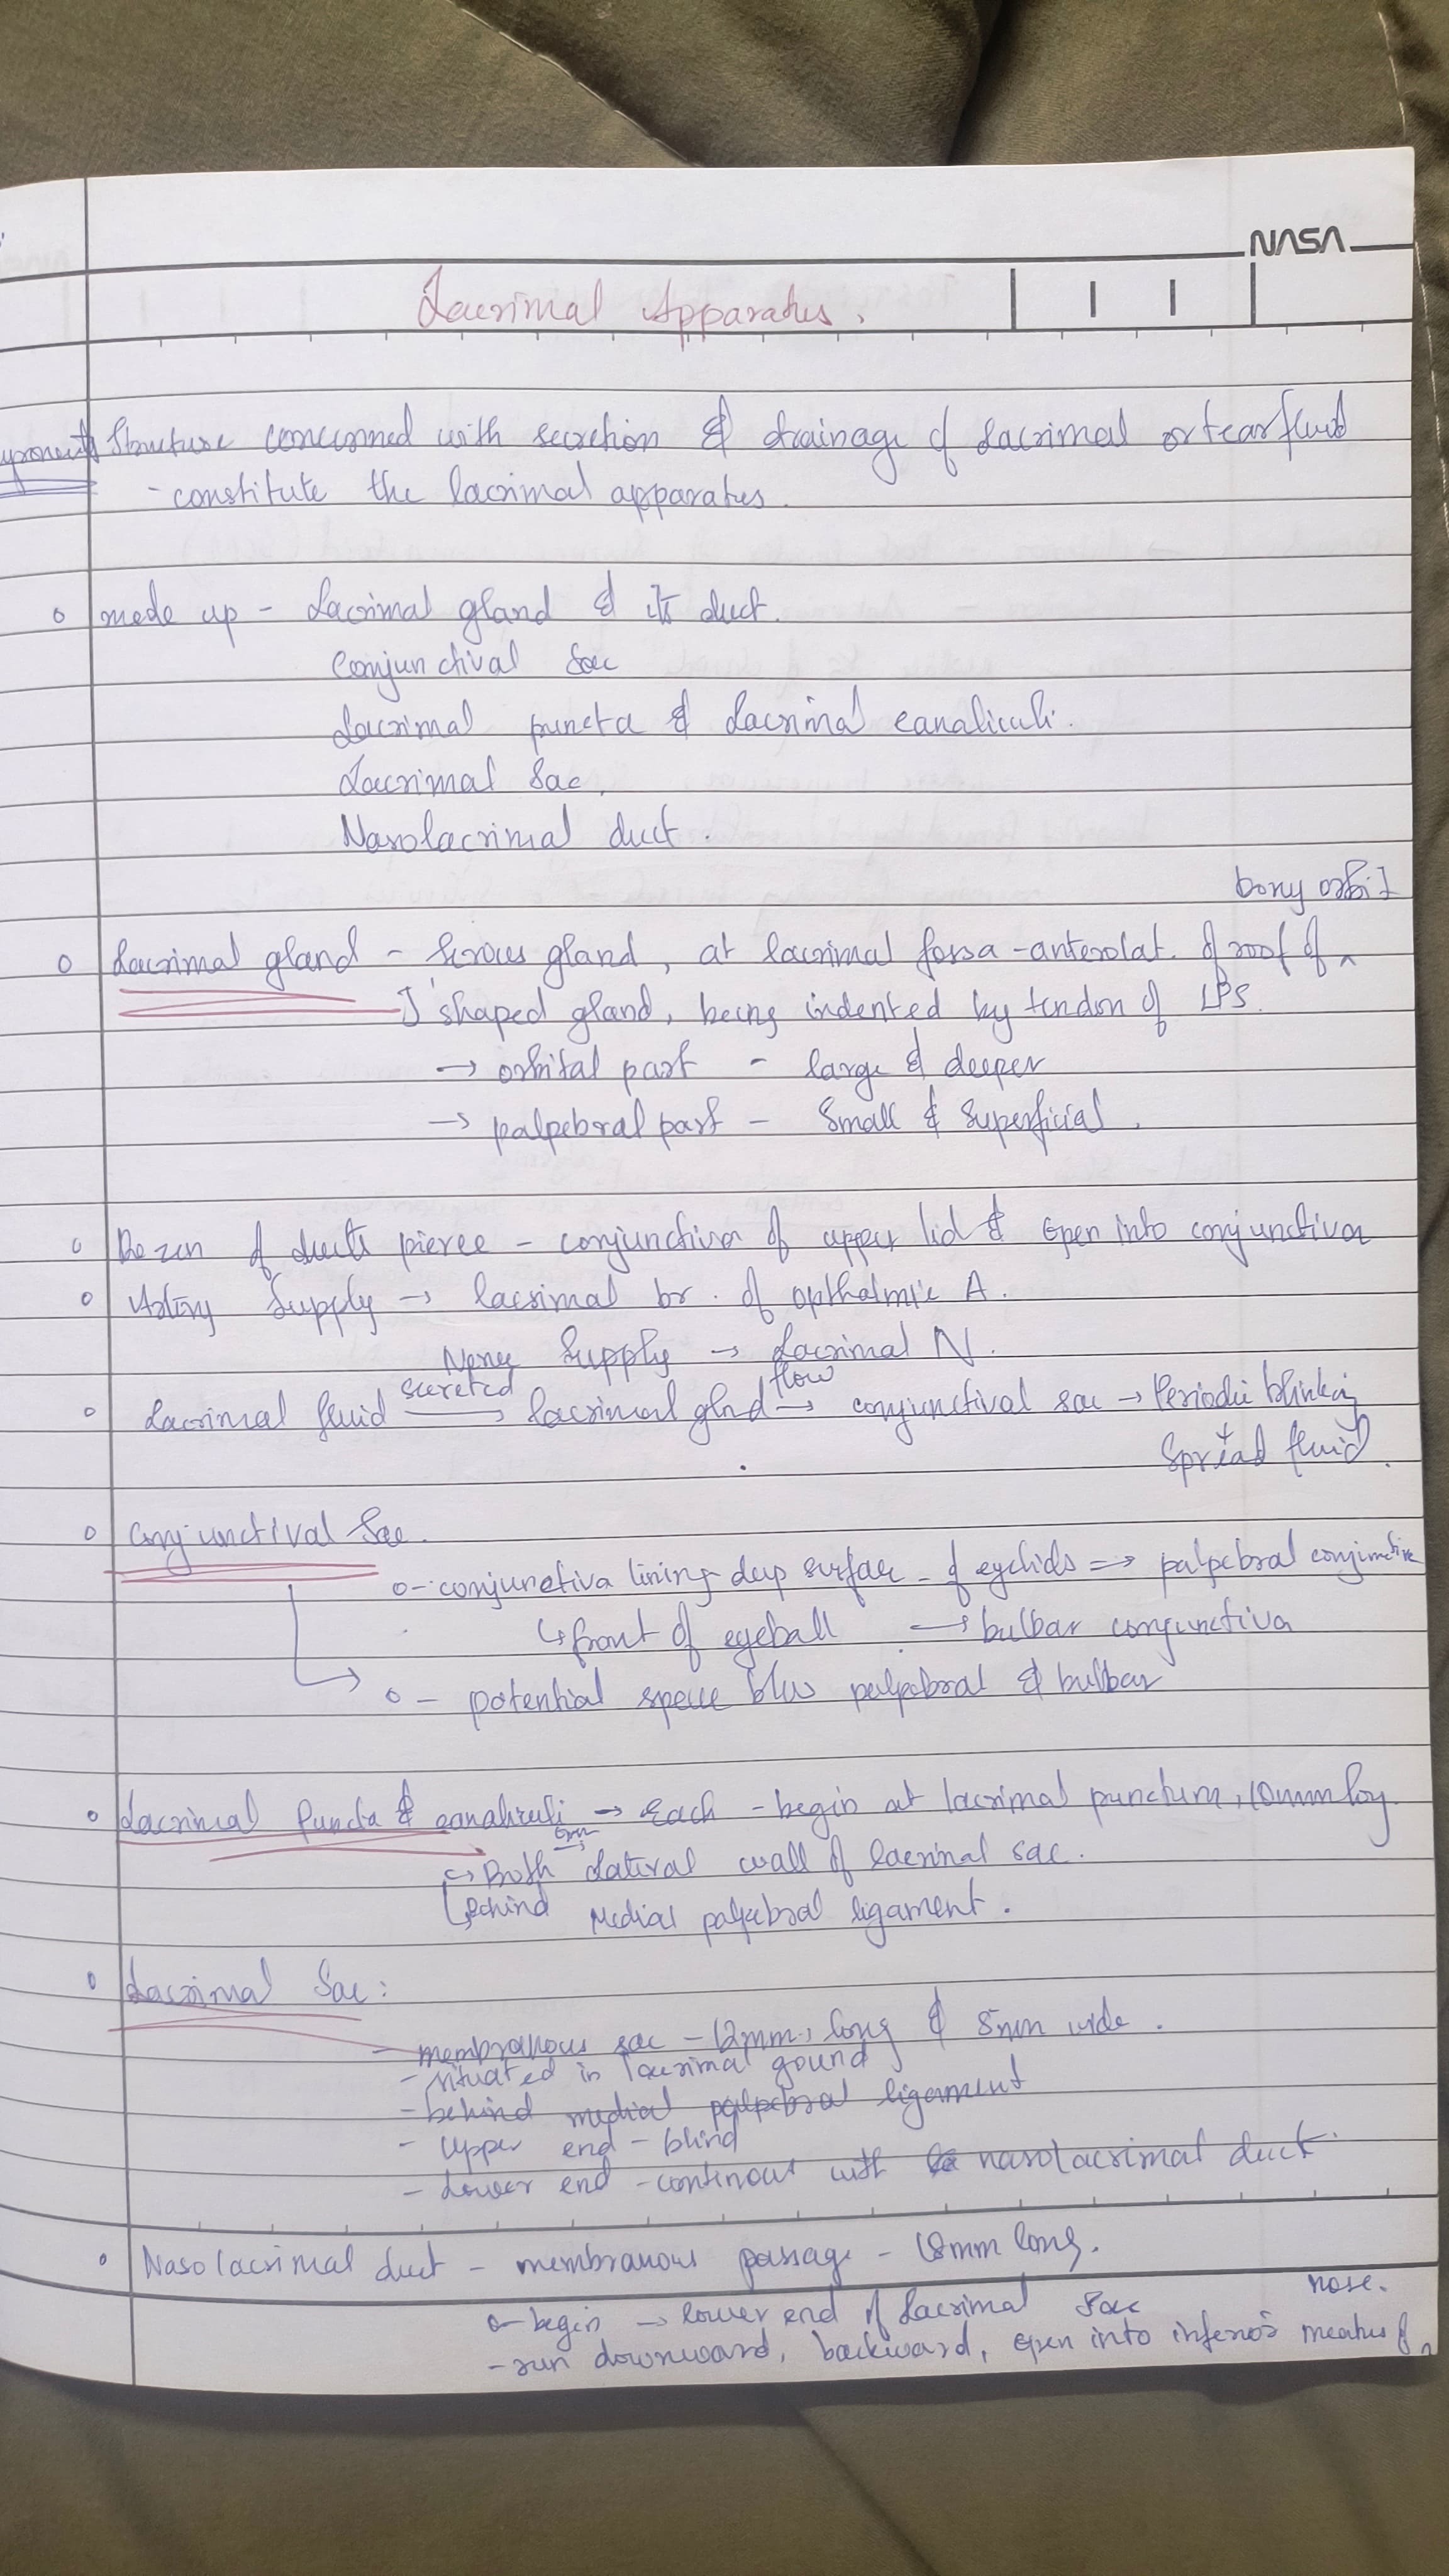 NASA
Lacrimal Apparatus.
Structure concerned with secretion & drainage of lacrimal or tear fluid
- constitute the lacrimal apparatus.
o made up - Lacrimal gland & its duct.
Conjunctival Sac
Lacrimal puncta & Lacrimal canaliculi.
Lacrimal Sac.
Nasolacrimal duct.
bony orbit
o Lacrimal gland - Serous gland, at lacrimal fossa - anterolat. of roof of ^
J shaped gland, being indented by tendon of LPS.
→ orbital part - large & deeper
→ palpebral part - Small & Superficial.
o Dozen of ducts pierce - conjunctiva of upper lid & open into conjunctiva
o Artery Supply → lacrimal br. of opthalmic A.
Nerve Supply → Lacrimal N.
secreted flow
o Lacrimal fluid → lacrimal glnd → conjunctival sac → Periodic blinking
↓
Spread fluid.
o Conjunctival Sac.
o - conjunctiva lining deep surface of eyelids => palpebral conjunctiva
↳ front of eyeball → bulbar conjunctiva
o - potential space b/w palpebral & bulbar
o Lacrimal Puncta & canaliculi → Each - begin at lacrimal punctum, 10mm long.
↳ Both → Lateral wall of lacrimal sac.
↳ Behind Medial palpebral ligament.
o Lacrimal Sac:
- membranous sac - 12mm, long & 5mm wide.
- situated in lacrimal
- behind medial palpebral ligament
- Upper end - blind
- Lower end - continous with nasolacrimal duct.
o Nasolacrimal duct - membranous passage - 18mm long.
o - begin → lower end of Lacrimal Sac
nose.
- run downward, backward, open into inferior meatus of ^